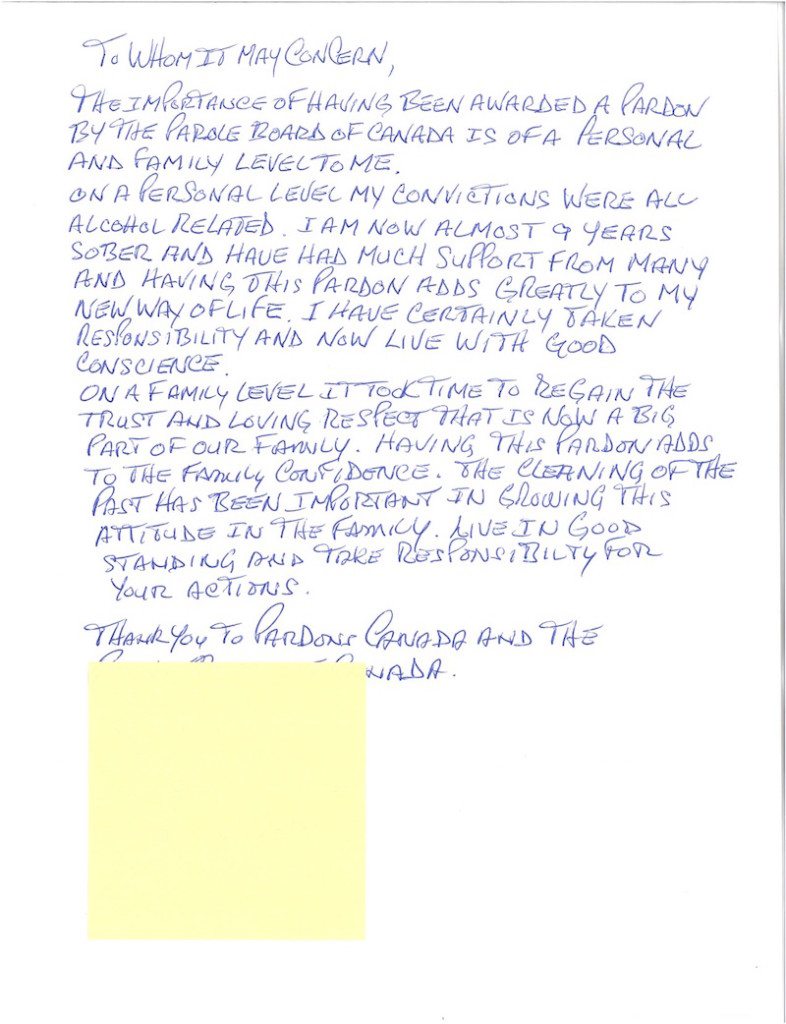 To WHOM IT MAY CONCERN,
THE IMPORTANCE OF HAVING BEEN AWARDED A PARDON
BY THE PAROLE BOARD OF CANADA IS OF A PERSONAL
AND FAMILY LEVEL TO ME.
ON A PERSONAL LEVEL MY CONVICTIONS WERE ALL
ALCOHOL RELATED. I AM NOW ALMOST 9 YEARS
SOBER AND HAVE HAD MUCH SUPPORT FROM MANY
AND HAVING THIS PARDON ADDS GREATLY TO MY
NEW WAY OF LIFE. I HAVE CERTAINLY TAKEN
RESPONSIBILITY AND NOW LIVE WITH GOOD
CONSCIENCE.
ON A FAMILY LEVEL IT TOOK TIME TO REGAIN THE
TRUST AND LOVING RESPECT THAT IS NOW A BIG
PART OF OUR FAMILY. HAVING THIS PARDON ADDS
TO THE FAMILY CONFIDENCE. THE CLEANING OF THE
PAST HAS BEEN IMPORTANT IN GROWING THIS
ATTITUDE IN THE FAMILY. LIVE IN GOOD
STANDING AND TAKE RESPONSIBILTY FOR
YOUR ACTIONS.
THANK YOU TO PARDONS CANADA AND THE
CANADA.